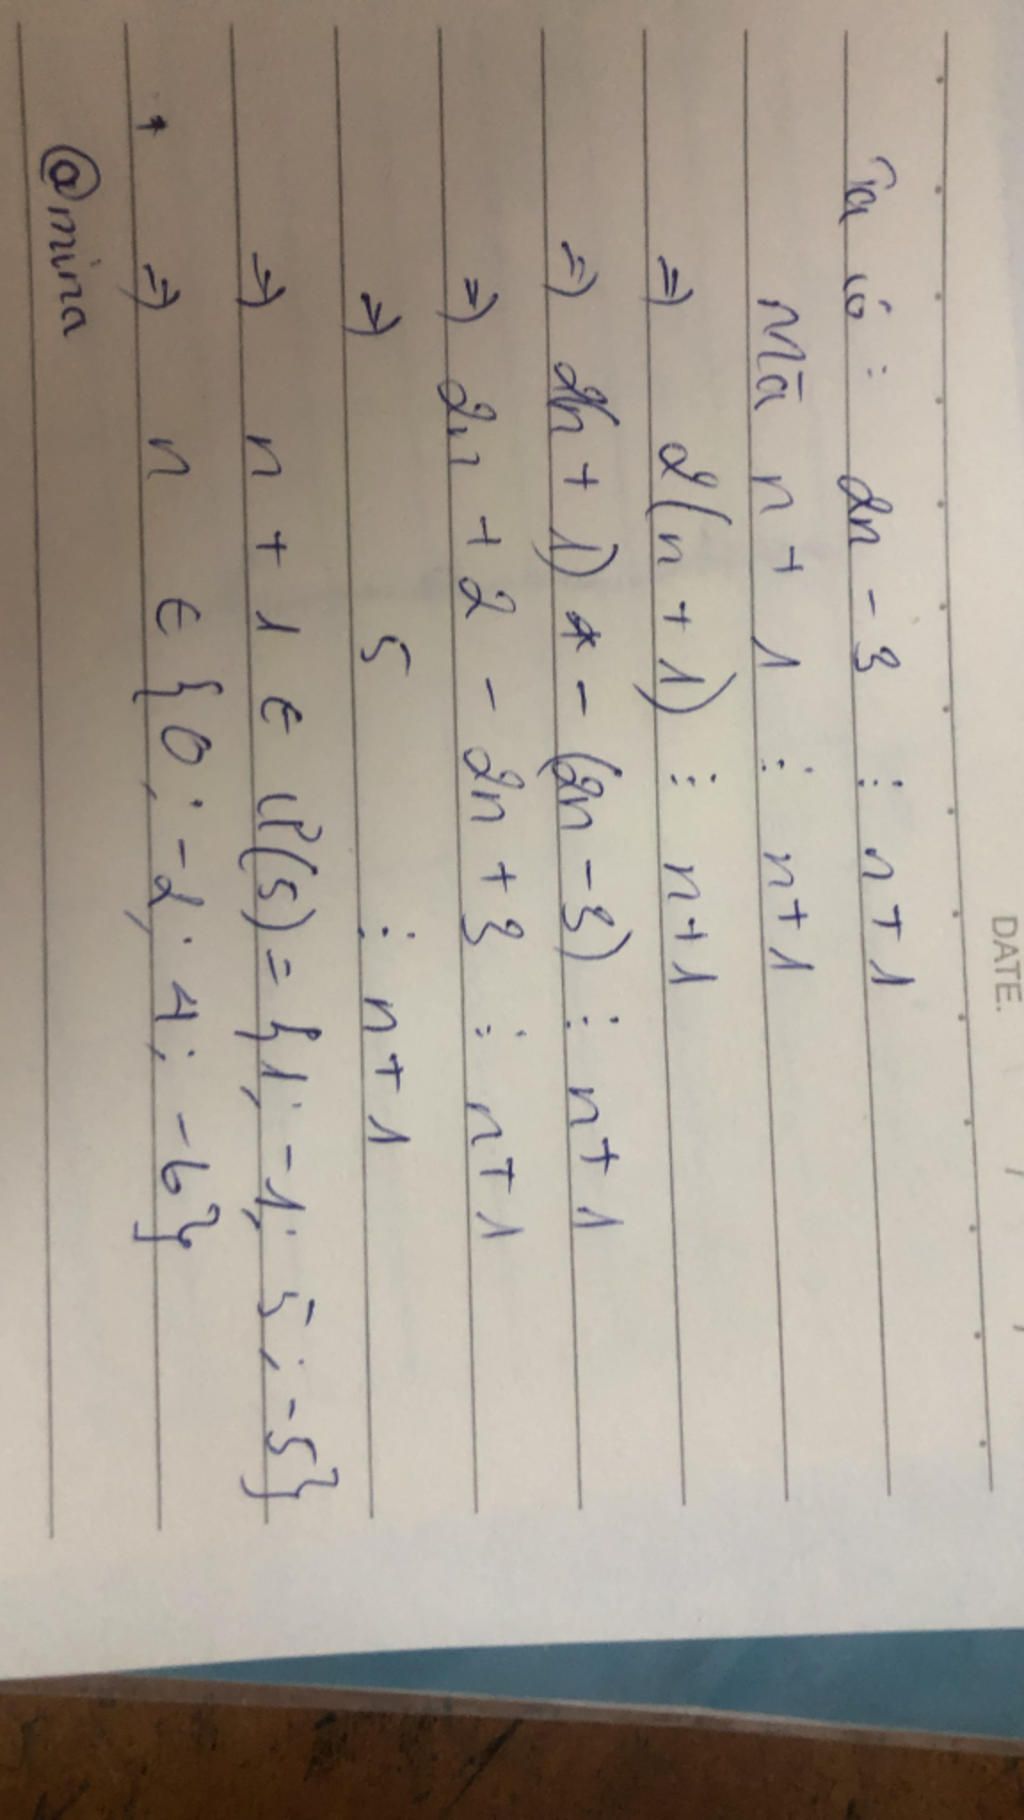 DATE:
Ta có : 2n - 3 ⋮ n+1
Mà n + 1 ⋮ n+1
=) 2(n + 1) ⋮ n+1
=) 2n + 1) - (2n - 3) ⋮ n+1
=) 2n + 2 - 2n + 3 ⋮ n+1
=) 5 ⋮ n+1
=) n + 1 ∈ Ư(5) = {1; -1; 5; -5}
=) n ∈ {0; -2; 4; -6}
@mina